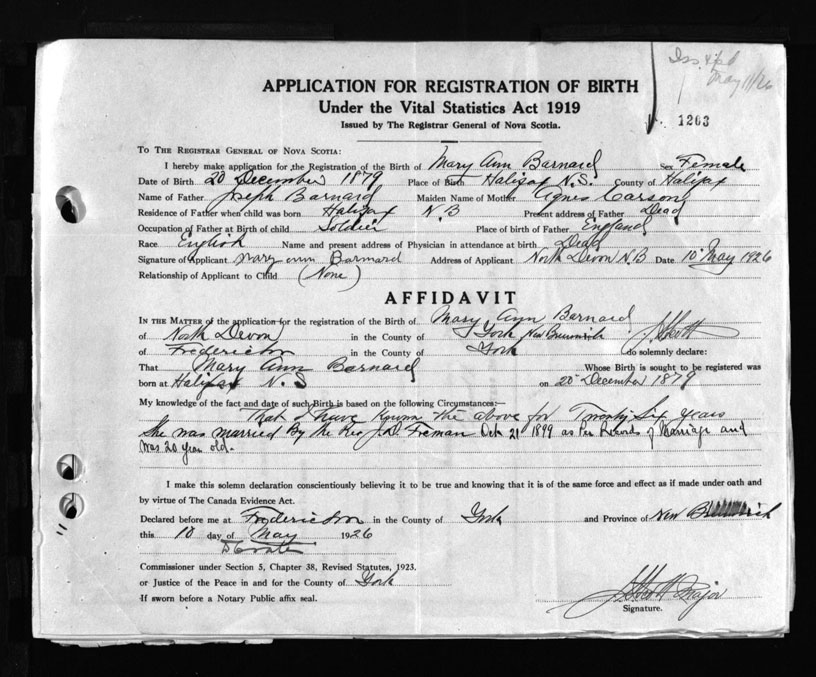 May 11/26
APPLICATION FOR REGISTRATION OF BIRTH
Under the Vital Statistics Act 1919
Issued by The Registrar General of Nova Scotia.
1263
TO THE REGISTRAR GENERAL OF NOVA SCOTIA:
I hereby make application for the Registration of the Birth of Mary Ann Barnard Sex Female
Date of Birth 20 December 1879 Place of Birth Halifax N.S. County of Halifax
Name of Father Joseph Barnard Maiden Name of Mother Agnes Carson
Residence of Father when child was born Halifax N.B Present address of Father Dead
Occupation of Father at Birth of child Soldier Place of birth of Father England
Race English Name and present address of Physician in attendance at birth Dead
Signature of Applicant Mary Ann Barnard Address of Applicant North Devon N.B Date 10 May 1926
Relationship of Applicant to Child (None)
AFFIDAVIT
IN THE MATTER of the application for the registration of the Birth of Mary Ann Barnard
of North Devon in the County of York New Brunswick J Scott
of Fredericton in the County of York do solemnly declare:
That Mary Ann Barnard Whose Birth is sought to be registered was
born at Halifax N.S on 20 December 1879
My knowledge of the fact and date of such Birth is based on the following Circumstances:—
That I have known the above for Twenty Six years
She was married By the Rev J.D. Freman Oct 21 1899 as Per Records of Marriage and
Was 20 year old.
I make this solemn declaration conscientiously believing it to be true and knowing that it is of the same force and effect as if made under oath and
by virtue of The Canada Evidence Act.
Declared before me at Fredericton in the County of York and Province of New Brunswick
this 10 day of May 1926
Commissioner under Section 5, Chapter 38, Revised Statutes, 1923.
or Justice of the Peace in and for the County of York
If sworn before a Notary Public affix seal.
J Scott Major
Signature.